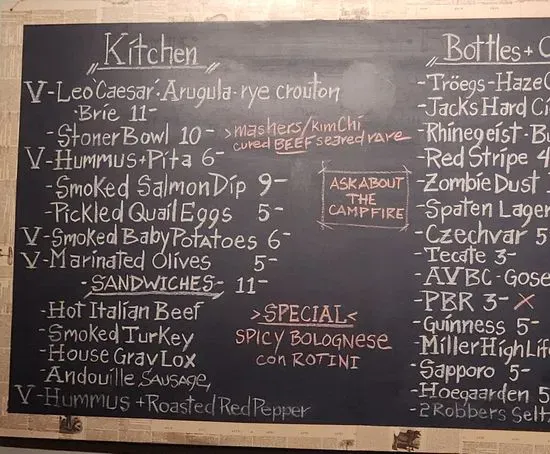 Kitchen
V-Leo Caesar: Arugula-rye crouton
Brie 11-
-Stoner Bowl 10-
>mashers/KimChi
cured BEEF seared rare
V-Hummus+Pita 6-
-Smoked Salmon Dip 9-
-Pickled Quail Eggs 5-
V-Smoked Baby Potatoes 6-
V-Marinated Olives 5-
-SANDWICHES- 11-
-Hot Italian Beef
-Smoked Turkey
-House GravLox
-Andouille SAUSAGE,
V-Hummus+Roasted Red Pepper
ASK ABOUT
THE
CAMPFIRE
>SPECIAL<
SPICY BOLOGNESE
con ROTINI
Bottles+C
-Tröegs-HazeC
-Jacks Hard Ci
-Rhinegeist-Bu
-Red Stripe 4
-Zombie Dust
-Spaten Lager
-Czechvar 5
-Tecate 3-
-AVBC-Gose
-PBR 3-X
-Guinness 5-
-Miller High Life
-Sapporo 5-
-Hoegaarden 5
-2 Robbers Seltz